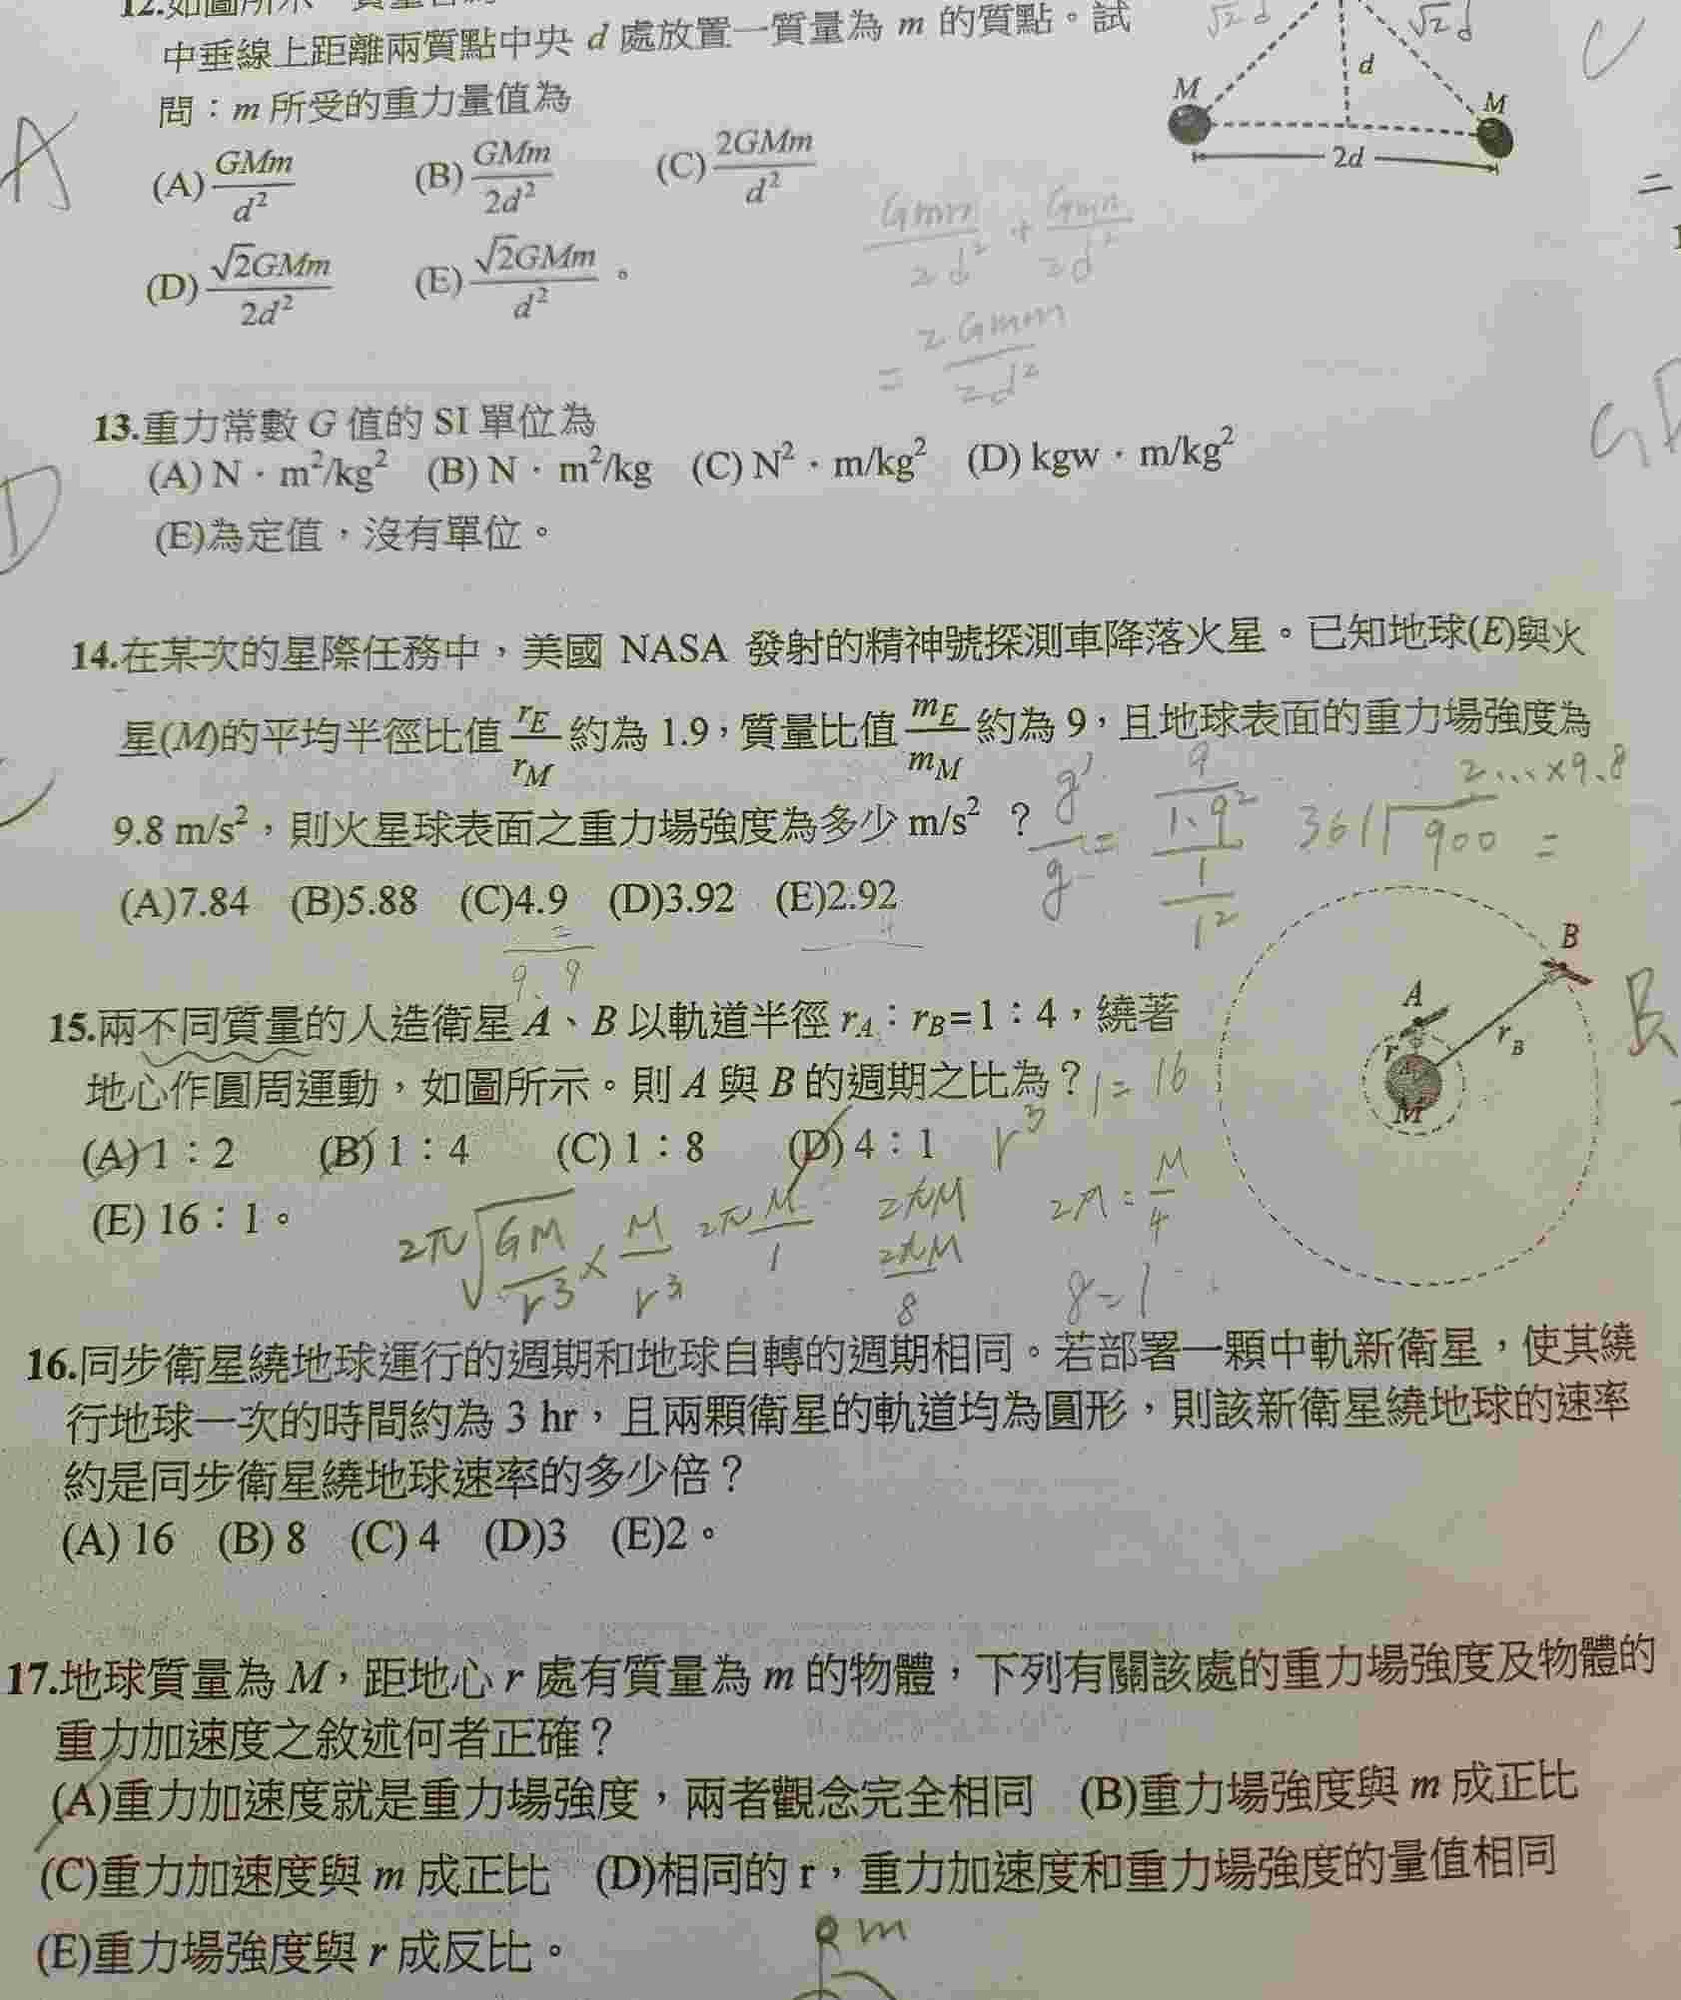 12.如圖所示
中垂線上距離兩質點中央 d 處放置一質量為 m 的質點。試
問：m 所受的重力量值為
(A) GMm/d² (B) GMm/2d² (C) 2GMm/d²
(D) √2GMm/2d² (E) √2GMm/d² 。
√2 d
√2 d
d
M
M
2d
A
Gmm/2d² + Gmm/2d²
= 2Gmm/2d²
13.重力常數 G 值的 SI 單位為
(A) N · m²/kg² (B) N · m²/kg (C) N² · m/kg² (D) kgw · m/kg²
(E)為定值，沒有單位。
D
14.在某次的星際任務中，美國 NASA 發射的精神號探測車降落火星。已知地球(E)與火
星(M)的平均半徑比值 rE/rM 約為 1.9，質量比值 mE/mM 約為 9，且地球表面的重力場強度為
9.8 m/s²，則火星球表面之重力場強度為多少 m/s² ？
(A)7.84 (B)5.88 (C)4.9 (D)3.92 (E)2.92
g'/g = 9/1.9² / 1/1²
361 900 =
2... ×9.8
15.兩不同質量的人造衛星 A、B 以軌道半徑 rA：rB=1：4，繞著
地心作圓周運動，如圖所示。則 A 與 B 的週期之比為？
(A) 1：2 (B) 1：4 (C) 1：8 (D) 4：1
(E) 16：1。
B
A
r
B
M
B
1= 16
r³
2π√GM/r³ × M/r³
2π M/1
2πM
2πM/8
2M = M/4
8=1
16.同步衛星繞地球運行的週期和地球自轉的週期相同。若部署一顆中軌新衛星，使其繞
行地球一次的時間約為 3 hr，且兩顆衛星的軌道均為圓形，則該新衛星繞地球的速率
約是同步衛星繞地球速率的多少倍？
(A) 16 (B) 8 (C) 4 (D)3 (E)2。
17.地球質量為 M，距地心 r 處有質量為 m 的物體，下列有關該處的重力場強度及物體的
重力加速度之敘述何者正確？
(A)重力加速度就是重力場強度，兩者觀念完全相同 (B)重力場強度與 m 成正比
(C)重力加速度與 m 成正比 (D)相同的 r，重力加速度和重力場強度的量值相同
(E)重力場強度與 r 成反比。
m